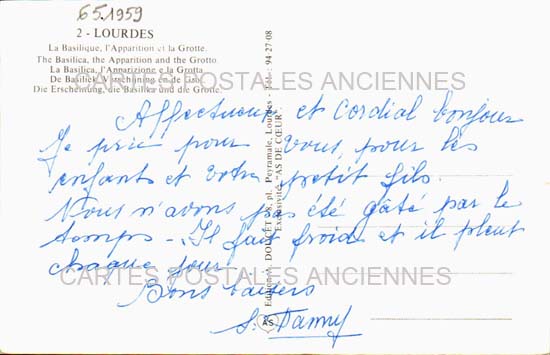 6 5 1959
2 - LOURDES
La Basilique, l'Apparition et la Grotte.
The Basilica, the Apparition and the Grotto
La Basilica, l'Apparizione e la Grotta
De Basiliek, Verschijning en de Grot
Die Erscheinung, die Basilika und die Grotte
CARTES POSTALES ANCIENNES
Affectueux et Cordial bonjour
Je prie pour vous, pour les
enfants et votre petit fils.
Nous n'avons pas été gâté par le
temps - Il fait froid et il pleut
chaque jour
CARTES POSTALES ANCIENNES
Bons baisers
S. Danny
Editions DOUCET, 18, pl. Peyramale, Lourdes - Tél.: 94-27-08
Exclusivité "AS DE CŒUR"
AS